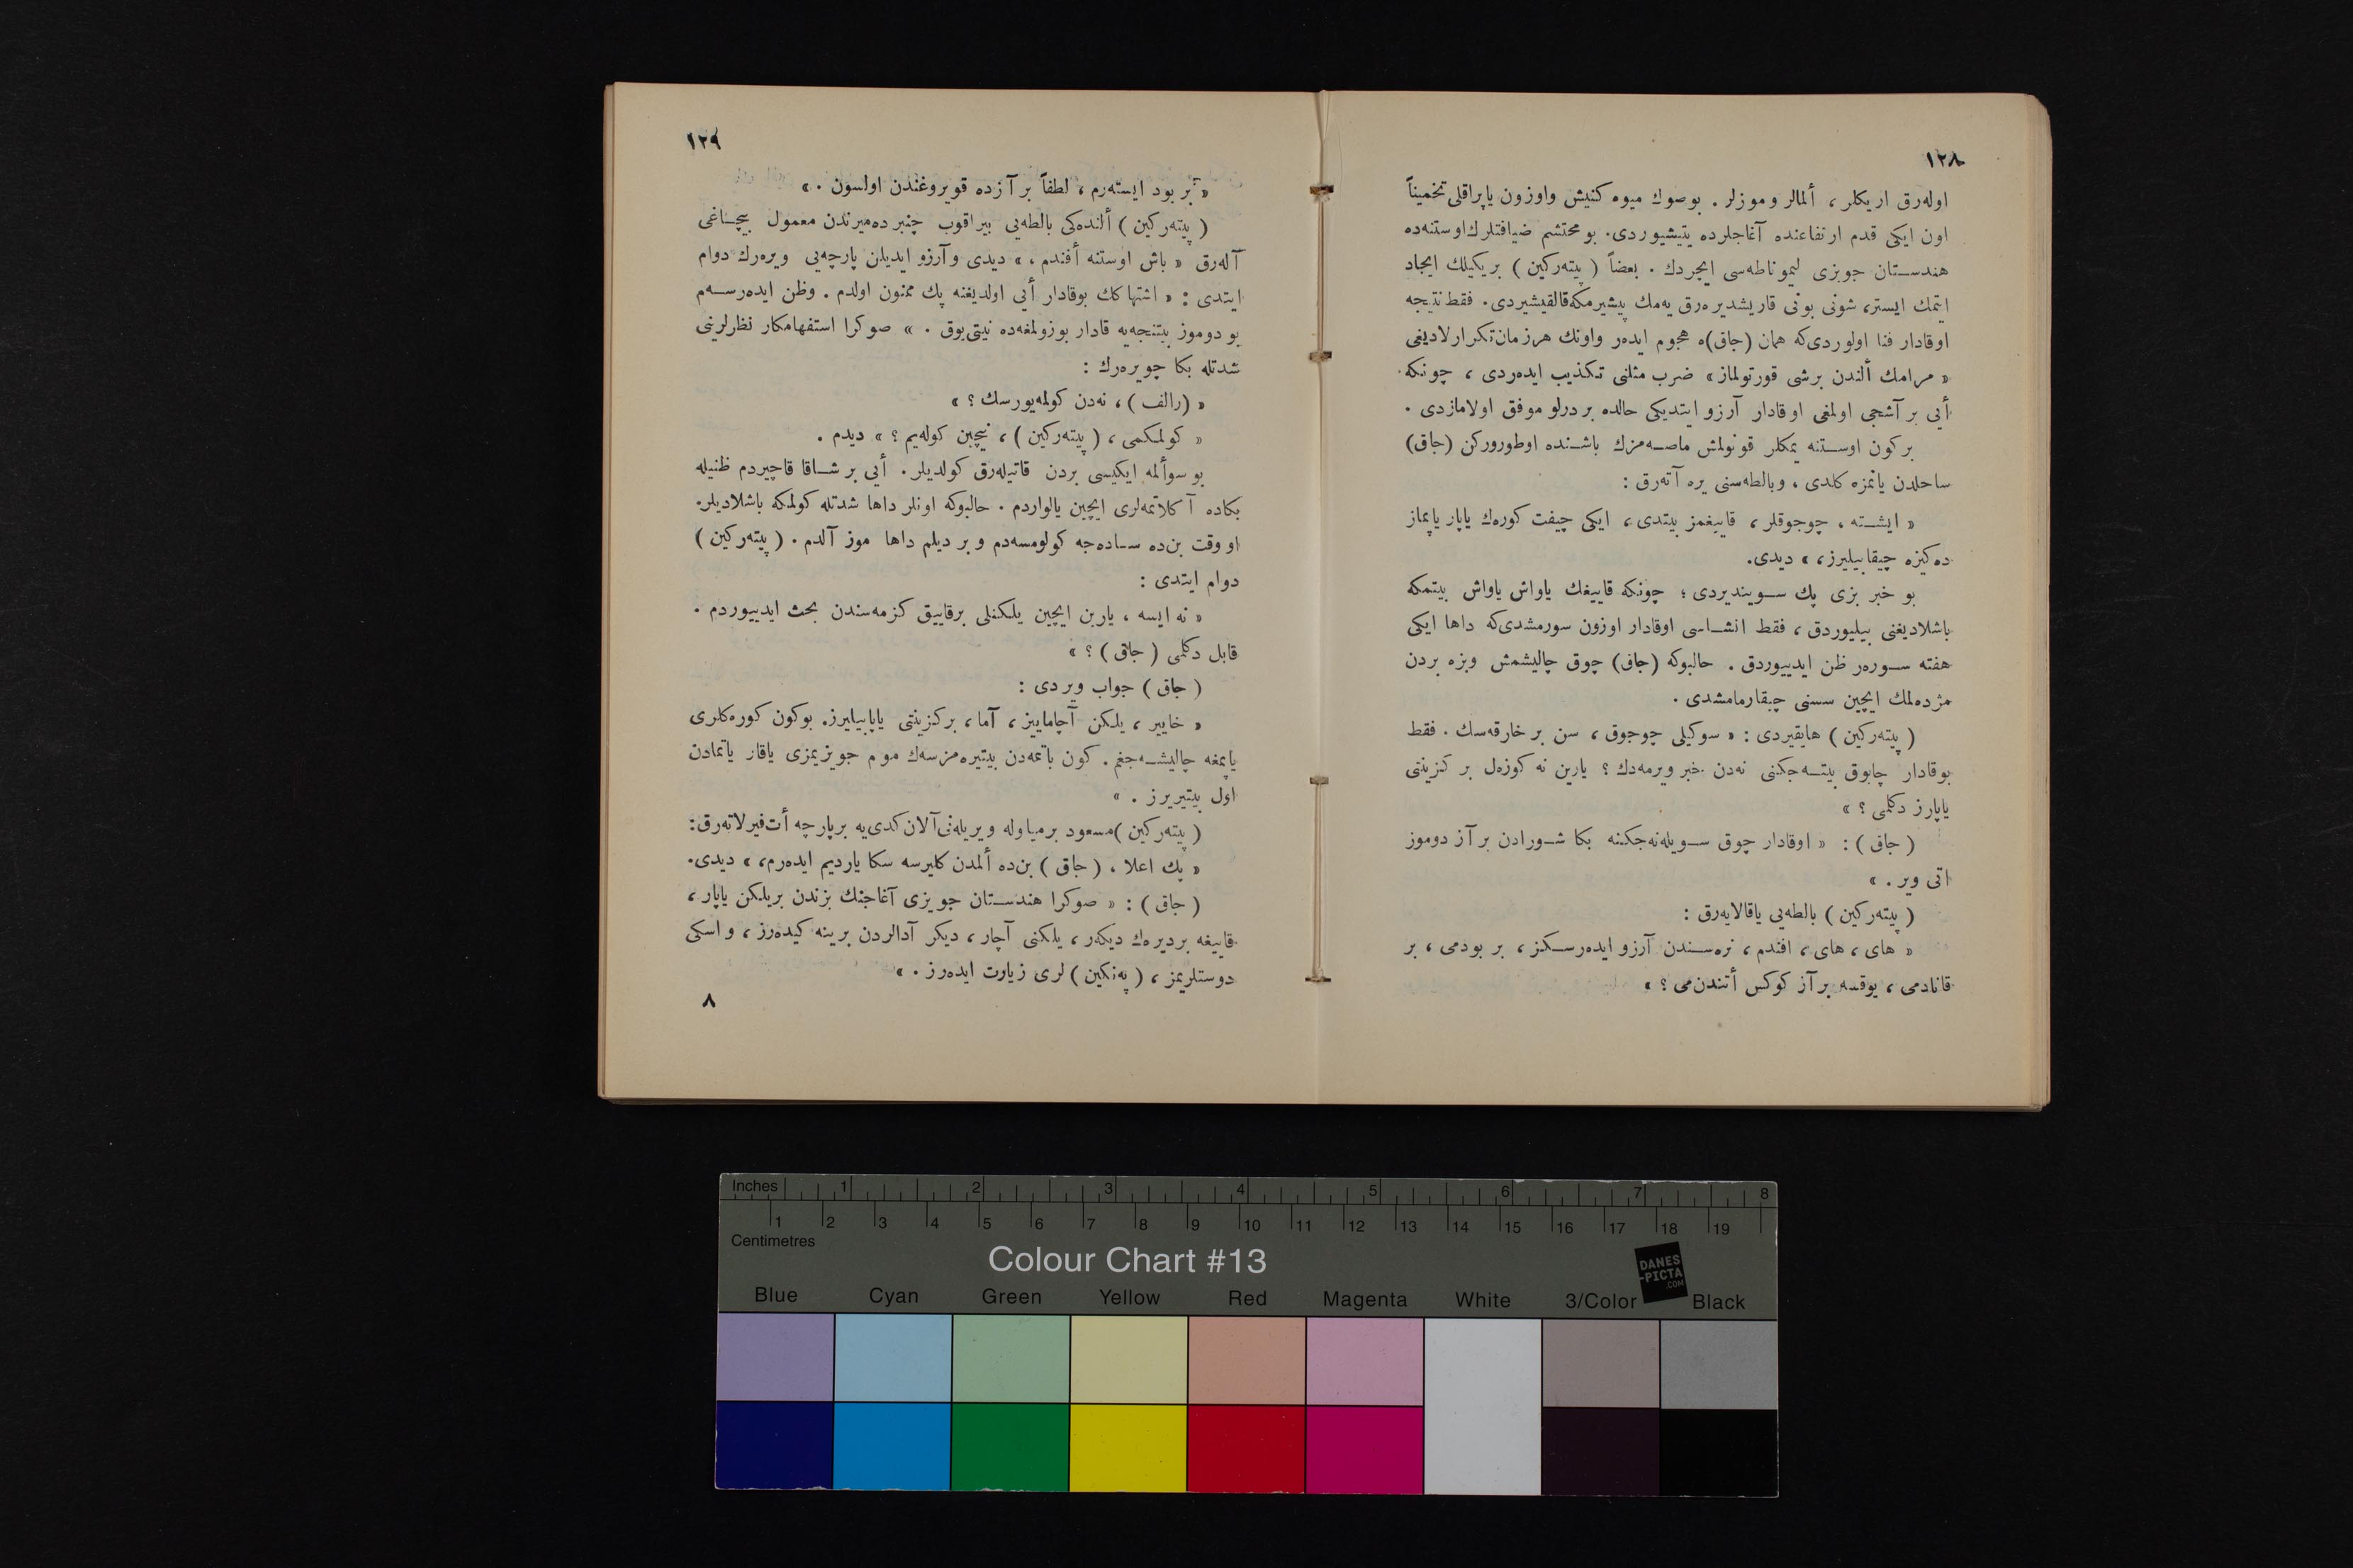 ١٢٨
اوله‌رق اریكلر ، ألمالر و موزلر . بوصوك میوه كنیش واوزون یاپراقلی تخمیناً
اون ایكی قدم ارتفاعنده آغاجلرده یتیشیوردی. بو محتشم ضیافتلرك اوستنه‌ده
هندستان جویزی لیموناطه‌سی ایچردك . بعضاً ( پیته‌ركین ) بر یكیلك ایجاد
ایتمك ایستر، شونی بونی قاریشدیره‌رق یه‌مك پیشیرمكه قالقیشیردی. فقط نتیجه
اوقادار فنا اولوردی‌كه همان (جاق)ه هجوم ایده‌ر واونك هرزمان تكرارلادیغی
« مرامك ألندن برشی قورتولماز» ضرب مثلنی تكذیب ایده‌ردی ، چونكه
أیی بر آشجی اولمغی اوقادار آرزو ایتدیكی حالده بر درلو موفق اولامازدی .
بركون اوستنه یمكلر قونولمش ماصه‌مزك باشنده اوطورركن (جاق)
ساحلدن یانمزه كلدی ، وبالطه‌سنی یره آته‌رق :
« ایشته ، چوجوقلر ، قاییغمز بیتدی ، ایكی چیفت كوره‌ك یاپار یاپماز
ده‌كیزه چیقابیلیرز ، » دیدی.
بو خبر بزی پك سویندیردی ؛ چونكه قاییغك یاواش یاواش بیتمكه
باشلادیغنی بیلیوردق ، فقط انشاسی اوقادار اوزون سورمشدی‌كه داها ایكی
هفته سوره‌ر ظن ایدییوردق . حالبوكه (جاق) چوق چالیشمش وبزه بردن
مژده‌لمك ایچین سسنی چیقارمامشدی .
( پیته‌ركین ) هایقیردی : « سوكیلی چوجوق ، سن بر خارقه‌سك . فقط
بوقادار چابوق بیته‌جكنی نه‌دن خبر ویرمه‌دك ؟ یارین نه كوزه‌ل بر كزینتی
یاپارز دكلمی ؟ »
( جاق ) : « اوقادار چوق سویله‌نه‌جكنه بكا شورادن بر آز دوموز
اتی ویر . »
( پیته‌ركین ) بالطه‌یی یاقالایه‌رق :
« های ، های ، افندم ، نره‌سندن آرزو ایده‌رسكز ، بر بودمی ، بر
قانادمی ، یوقسه بر آز كوكس أتندن‌می ؟ »
١٢٩
« بر بود ایسته‌رم ، لطفاً بر آزده قویروغندن اولسون . »
( پیته‌ركین ) ألنده‌كی بالطه‌یی بیراقوب چنبر ده‌میرندن معمول بیچاغی
آله‌رق « باش اوستنه أفندم ، » دیدی و آرزو ایدیلن پارچه‌یی ویره‌رك دوام
ایتدی : « اشتهاكك بوقادار أیی اولدیغنه پك ممنون اولدم . وظن ایده‌رسه‌م
بو دوموز بیتنجه‌یه قادار بوزولمغه‌ده نیتی یوق . » صوكرا استفهامكار نظرلرنی
شدتله بكا چویره‌رك :
« (رالف ) ، نه‌دن كولمه‌یورسك ؟ »
« كولمكمی ، ( پیته‌ركین ) ، نیچین كوله‌یم ؟ » دیدم .
بو سوألمه ایكیسی بردن قاتیله‌رق كولدیلر . أیی بر شاقا قاچیردم ظنیله
بكاده آكلاتمه‌لری ایچین یالواردم . حالبوكه اونلر داها شدتله كولمكه باشلادیلر.
او وقت بن‌ده ساده‌جه كولومسه‌دم و بر دیلم داها موز آلدم . ( پیته‌ركین )
دوام ایتدی :
« نه ایسه ، یارین ایچین یلكنلی برقاییق كزمه‌سندن بحث ایدییوردم .
قابل دكلمی ( جاق ) ؟ »
( جاق ) جواب ویردی :
« خاییر ، یلكن آچامایز ، آما ، بركزینتی یاپابیلیرز. بوكون كوره‌كلری
یاپمغه چالیشه‌جغم . كون باتمه‌دن بیتیره‌مزسه‌ك موم جویزیمزی یاقار یاتمادن
اول بیتیریرز . »
( پیته‌ركین )مسعود بر میاوله ویریله‌نی آلان كدی‌یه برپارچه أت فیرلاته‌رق:
« پك اعلا ، ( جاق ) بن‌ده ألمدن كلیرسه سكا یاردیم ایده‌رم، » دیدی.
( جاق ) : « صوكرا هندستان جویزی آغاجنك بزندن بریلكن یاپار ،
قاییغه بردیره‌ك دیكه‌ر ، یلكنی آچار ، دیكر آدالردن برینه كیده‌رز ، و اسكی
دوستلریمز ، ( په‌نكین ) لری زیارت ایده‌رز . »
٨
Inches 1 2 3 4 5 6 7 8
1 2 3 4 5 6 7 8 9 10 11 12 13 14 15 16 17 18 19
Centimetres
Colour Chart #13
DANES
-PICTA
.COM
Blue Cyan Green Yellow Red Magenta White 3/Color Black